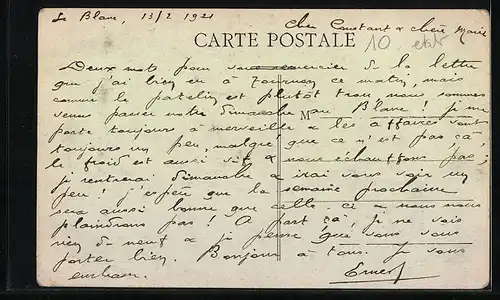 Le Blanc, 13/2 1921
Cher Constant & chère Marie
CARTE POSTALE
10
état
Deux mots pour vous remercier de la lettre
que j'ai bien eu à Tournon ce matin, mais
comme le patelin est plutôt trou, nous sommes
venus passer notre dimanche au Blanc! Je me
M
porte toujours à merveille & les affaires vont
toujours un peu, malgré que ce n'est pas ça,
le froid est aussi vif & nous échauffons pas;
je rentrerai dimanche & irai vous voir un
peu! j'espère que la semaine prochaine
sera aussi bonne que celle ci & nous nous
plaindrons pas! A part ça, je ne vois
rien de neuf & je pense que vous vous
portez bien. Bonjour à tous. Je vous
embrasse.
Ernest